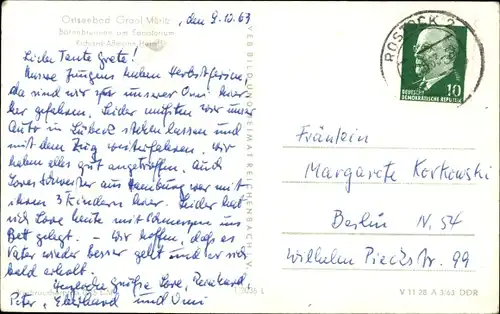 Ostseebad Graal-Müritz
Bärenbrunnen am Sanatorium
„Richard-Aßmann-Heim“
, den 9.10.63
Liebe Tante Grete!
Unsere Jungens haben Herbstferien,
da sind wir zur unserer Omi hier-
her gefahren. Leider mußten wir unser
Auto in Lübeck stehen lassen und
mit dem Zug weiterfahren. Wir
haben alles gut angetroffen. Auch
Lores Schwester aus Hamburg war mit
ihren 3 Kindern hier. Leider hat
sich Lore heute mit Schmerzen ins
Bett gelegt. Wir hoffen, daß es
Vater wieder besser geht und er sich
bald erholt.
Herzliche Grüße Lore, Reinhard,
Peter, Eberhard und Omi
VEB BILD UND HEIMAT REICHENBACH I. V.
ROSTOCK 2
10
DEUTSCHE
DEMOKRATISCHE REPUBLIK
Fräulein
Margarete Korkowski
Berlin N. 54
Wilhelm Pieckstr. 99
V 11 28 A 3/63 DDR